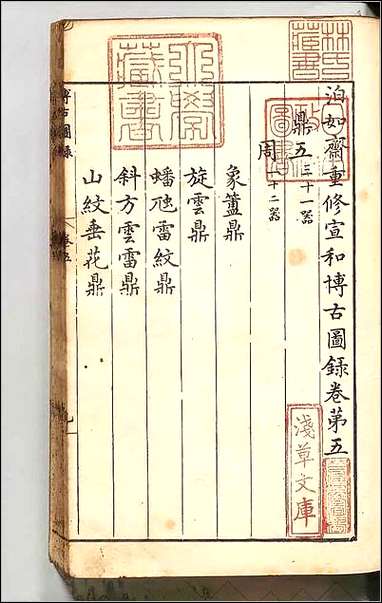 泊如齋重修宣和博古圖錄卷第五
鼎五三十一器
周一十二器
象簠鼎
旋雲鼎
蟠虺雷紋鼎
斜方雲雷鼎
山紋垂花鼎
博古圖錄
卷五
淺草文庫
林氏藏書
大學藏書